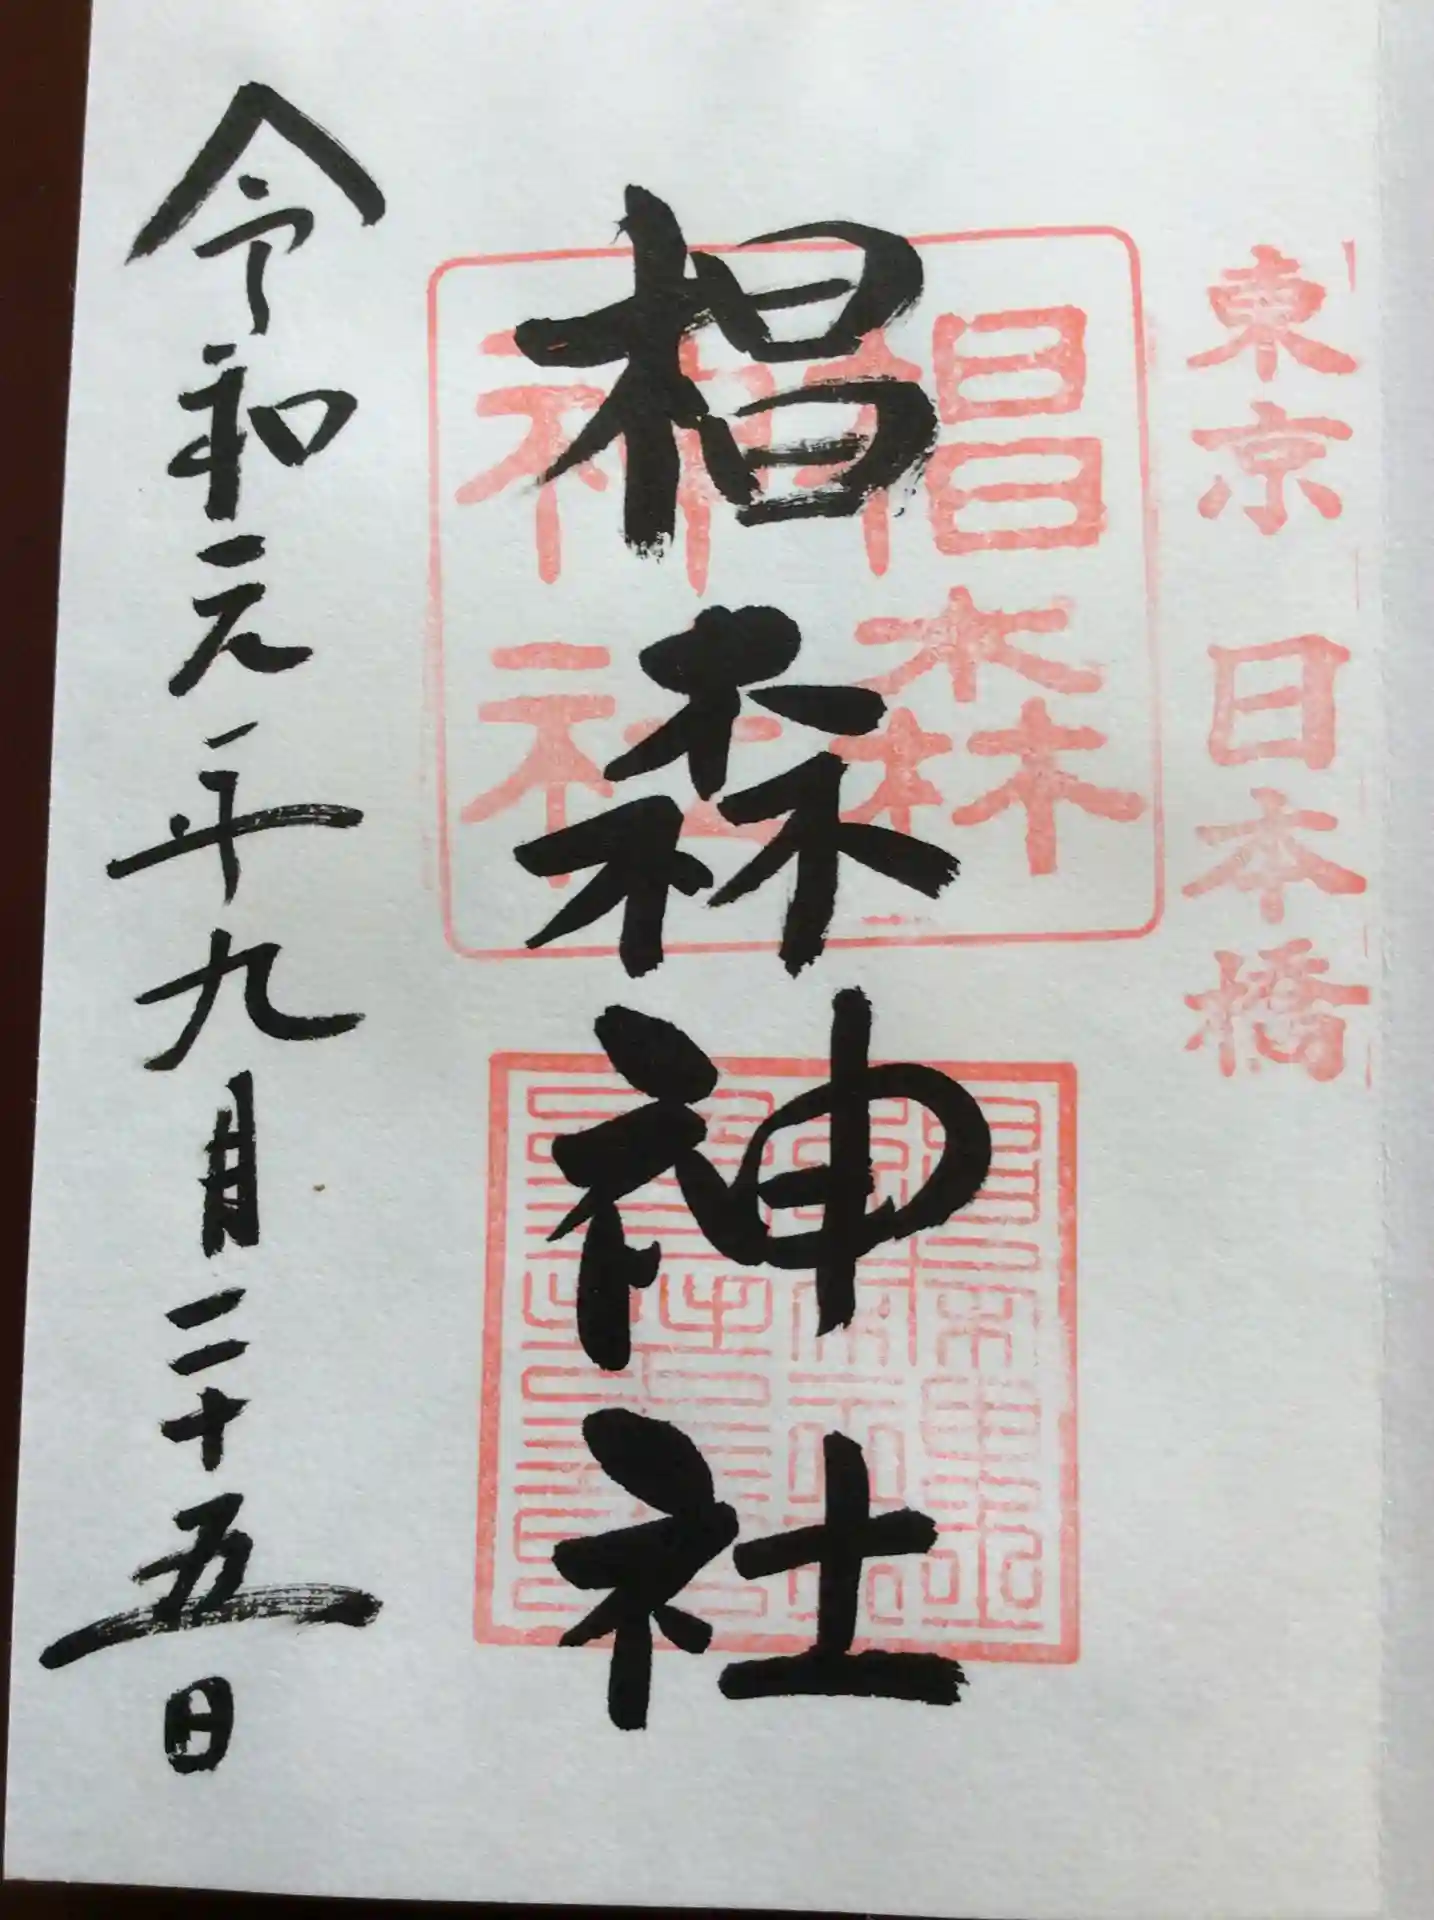 東京 日本橋
椙森神社
椙森
神社
令和元年九月二十五日